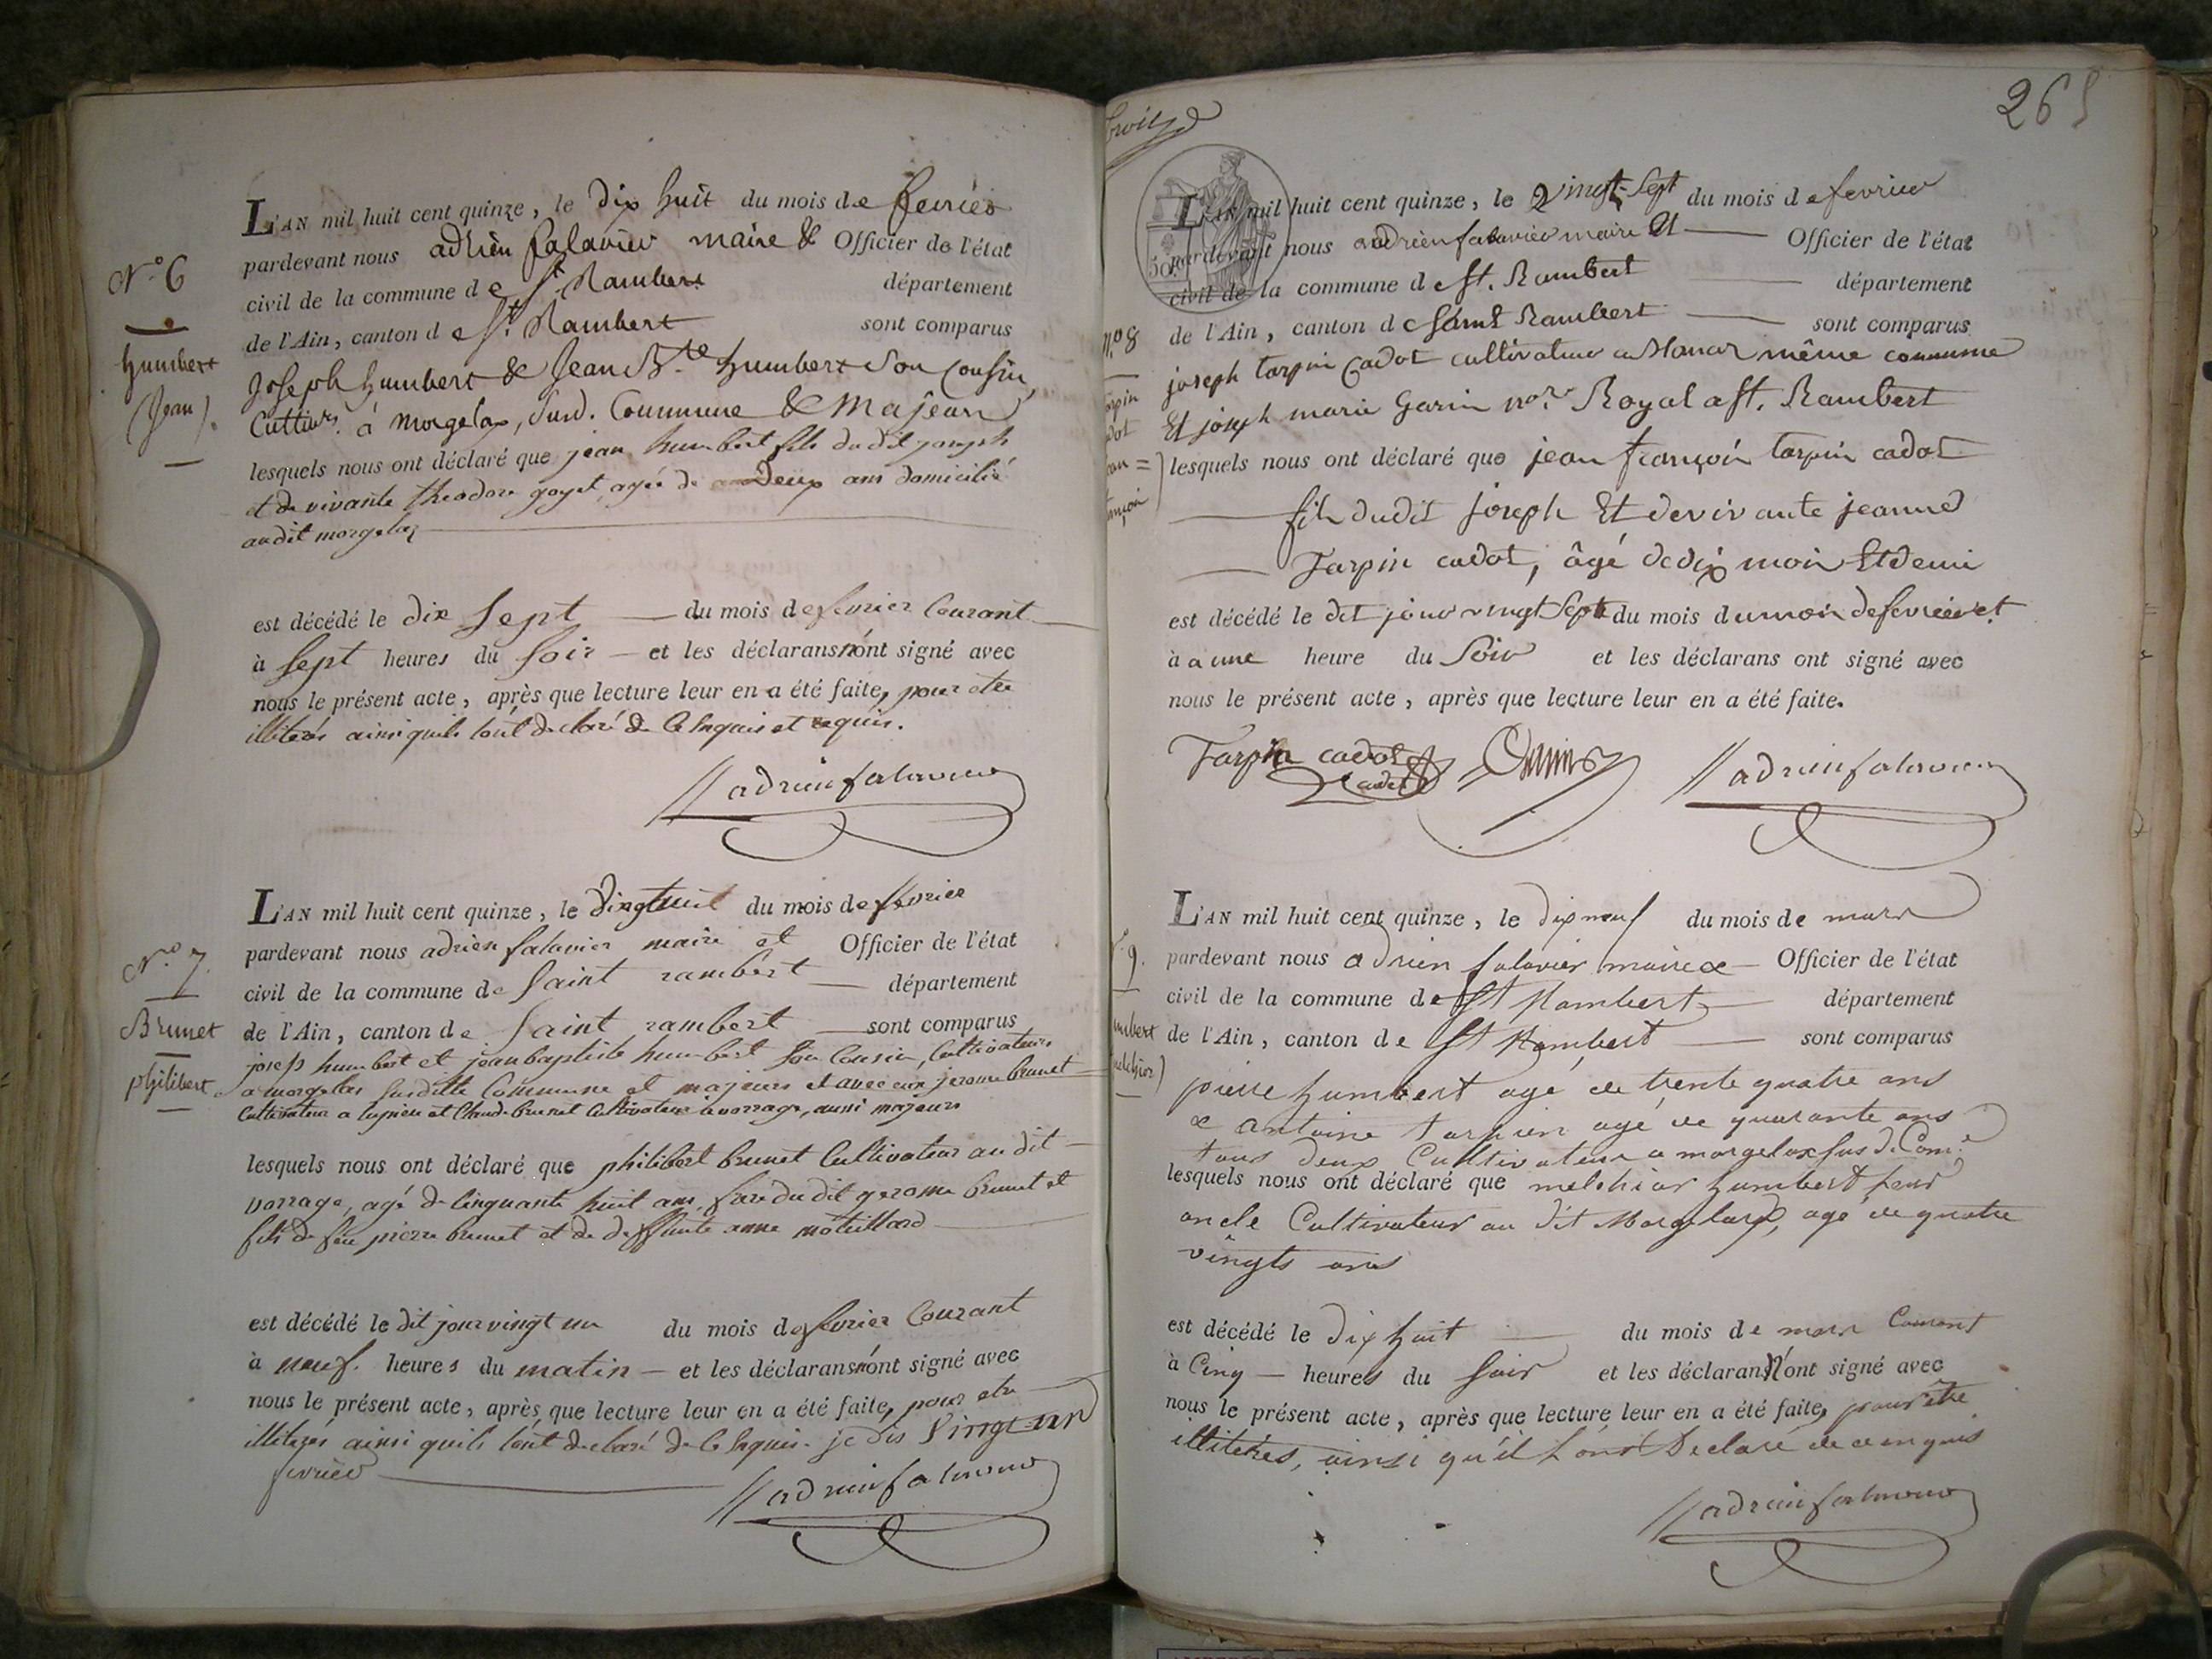 N.o 6
Humbert
(Jean).
L'AN mil huit cent quinze, le dix huit du mois de fevrier
pardevant nous adrien falavier maire & Officier de l'état
civil de la commune de St. Rambert département
de l'Ain, canton de St. Rambert sont comparus
Joseph humbert & Jean B.te humbert Son Cousin,
Cultivrs. à Morgelax, Susd. Commune & Majeurs
lesquels nous ont déclaré que jean humbert fils du dit joseph
et de vivante theodore goyet, agée de deux ans domicilié
audit morgelax
est décédé le dix Sept du mois de fevrier Courant
à Sept heures du Soir et les déclarans n'ont signé avec
nous le présent acte, après que lecture leur en a été faite, pour etre
illiterés ainsi quils l'ont declaré de ce Enquis et requis.
adrien falavier
N.o 7.
Brunet
philibert
L'AN mil huit cent quinze, le du mois de fevrier
pardevant nous adrien falavier maire et Officier de l'état
civil de la commune de Saint rambert département
de l'Ain, canton de Saint rambert sont comparus
joseph humbert et jean baptiste humbert Son Cousin, Cultivateurs
a morgelax Susditte Commune et majeurs et avec eux jerome brunet
Cultivateur a et Claude brunet Cultivateur à vorrage, aussi majeurs
lesquels nous ont déclaré que philibert brunet Cultivateur au dit
vorrage, agé de Cinquante huit ans, frere du dit gerome brunet et
fils de feu pierre brunet et de deffunte anne
est décédé le dit jour vingt un du mois de fevrier Courant
à neuf. heures du matin et les déclarans n'ont signé avec
nous le présent acte, après que lecture leur en a été faite, pour etre
illiterés ainsi quils l'ont declaré de ce Enquis. je dis Vingt un
fevrier
adrien falavier
265
L'AN mil huit cent quinze, le Vingt-Sept du mois de fevrier
pardevant nous adrien falavier maire Et Officier de l'état
civil de la commune de St. Rambert département
n.o 8 de l'Ain, canton de Saint Rambert sont comparus
joseph tarpin Cadot cultivateur même commune
Et joseph marie Garin no.re Royal a St. Rambert
lesquels nous ont déclaré que jean françois tarpin cadot
fils dudit joseph Et de vivante jeanne
Tarpin cadot, âgé de dix mois Et demi
est décédé le dit jour vingt Sept du mois du mois de fevrier et
à a une heure du Soir et les déclarans ont signé avec
nous le présent acte, après que lecture leur en a été faite.
Tarpin cadot Garin adrien falavier
cadet
L'AN mil huit cent quinze, le dix neuf du mois de mars
9. pardevant nous adrien falavier maire & Officier de l'état
civil de la commune de St Rambert département
de l'Ain, canton de St Rambert sont comparus
pierre humbert agé de trente quatre ans
& antoine tarpin agé de quarante ans
tous deux Cultivateurs a morgelax sus d. Com.e
lesquels nous ont déclaré que melchior humbert leur
oncle Cultivateur au dit Morgelax, agé de quatre
vingts ans
est décédé le dix huit du mois de mars Courant
à Cinq heures du Soir et les déclarans n'ont signé avec
nous le présent acte, après que lecture leur en a été faite, pour être
illiterés, ainsi qu'il l'ont Declaré de ce enquis
adrien falavier